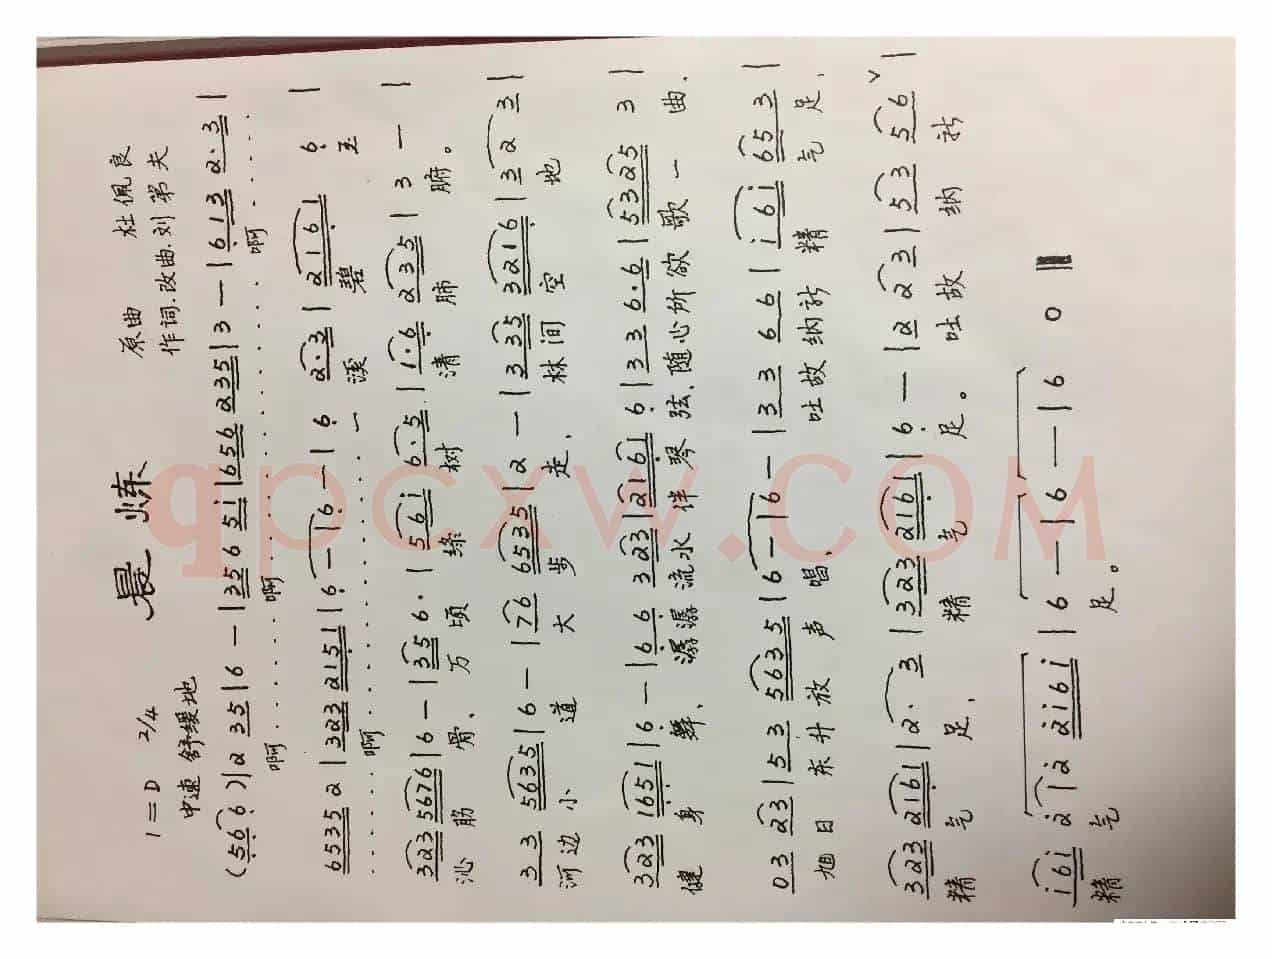 晨炼
1=D 2/4 原曲 杜佩良
中速 舒缓地 作词.改曲.刘第夫
(5 6 6)|2 3 5|6 —|3 5 6 5 i|6 5 6 2 3 5|3 —|6 1 3 2·3|
啊........啊........啊....
6 5 3 5 2|3 2 3 2 1 5 1|6 —|6 —|6 2·3|2 1 6 1 6|
....啊........一 溪 碧 玉
3 2 3 5 6 7 6|6 —|3 5 6·|5 6 i 6·5|1·6 2 3 5|3 —|
沁 筋 骨、 万 顷 绿 树 清 肺 腑。
3 3 5 6 3 5|6 —|7 6 6 5 3 5|2 —|3 3 5 3 2 1 6|3 2 3|
河边 小 道 大 步 走, 林间 空 地
3 2 3 1 6 5 1|6 —|6 6 3 2 3|2 1 6 1 6|3 3 6·6|5 3 2 5 3|
健 身 舞、 潺潺 流水 伴 琴 弦、随心所欲 歌 一 曲.
0 3 2 3|5 3 5 6 3 5|6 —|6 —|3 3 6 6|i 6 i 6 5 3|
旭日 东升 放 声 唱, 吐故纳新 精 气 足,
3 2 3 2 1 6 1|2· 3|3 2 3 2 1 6 1|6 —|2 2 3|5 3 5 6|
精 气 足, 精 气 足。 吐 故 纳 新
i 6 i 2|2 2 i 6 i|6 —|6 —|6 0
精 气 足。
qpcxw.COM